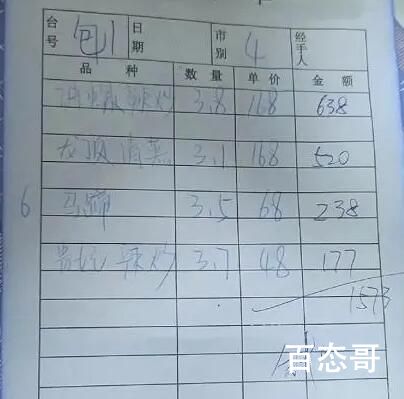 台号 包川 日期 市别 4 经手人
品种 数量 单价 金额
辣炒 3.8 168 638
龙须 清蒸 3.1 168 520
6 马蹄 3.5 68 238
辣炒 3.7 48 177
1573
百态哥